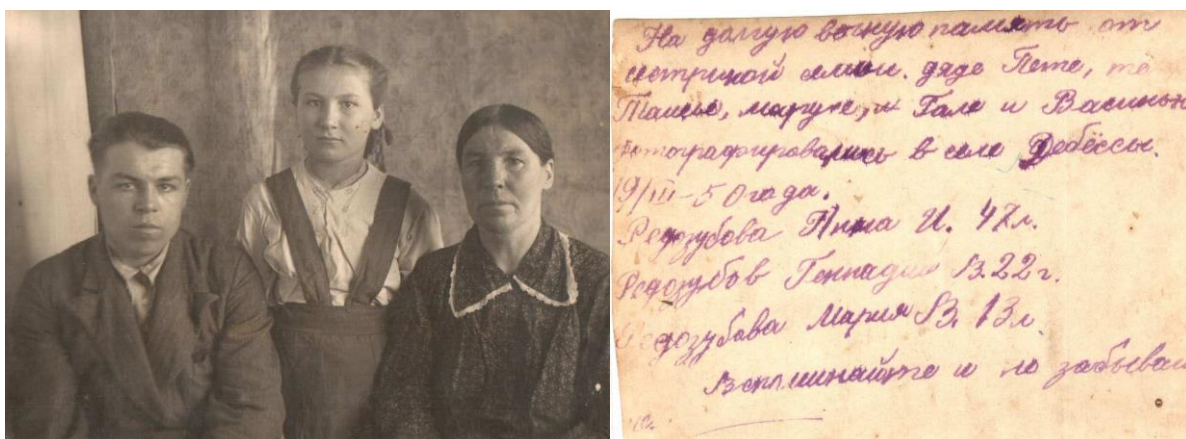 На долгую вечную память от
сестриной семьи. дяде Пете, те
Таисье, марусе, и Гале и Васиньке
фотографировались в селе Дебёссы.
19/III-50 года.
Редозубова Анна И. 47л.
Редозубов Геннадий В. 22 г.
Редозубова Мария В. 13л.
Вспоминайте и не забывай